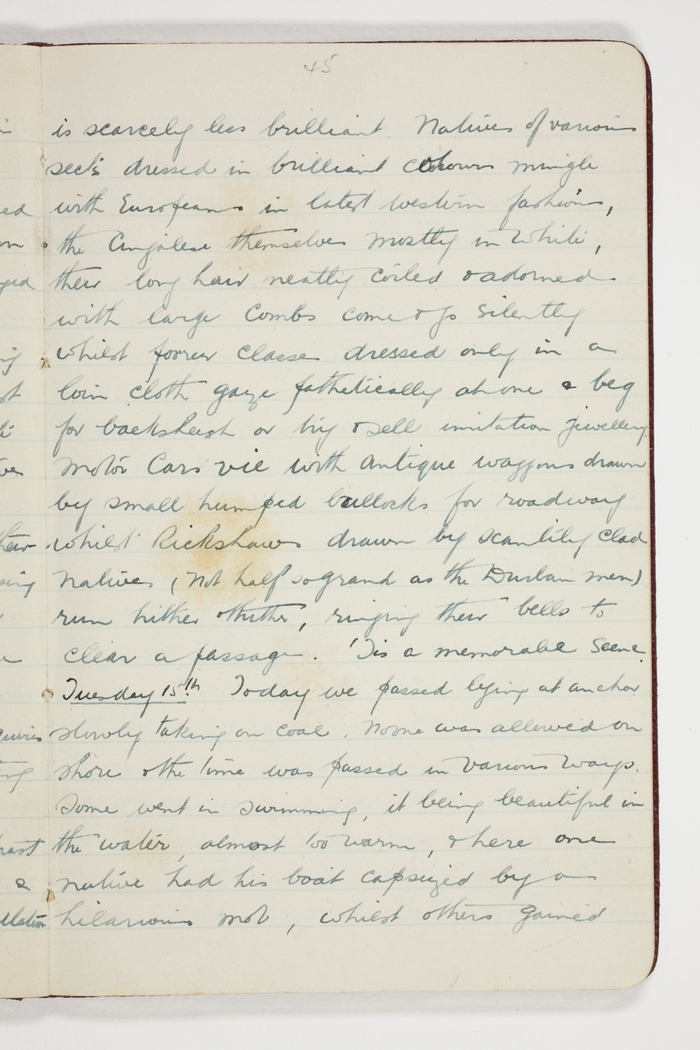 45
is scarcely less brilliant. Natives of various
sects dressed in brilliant colours mingle
with Europeans in latest western fashions,
the Cingalese themselves mostly in White,
their long hair neatly coiled & adorned
with large Combs come & go silently
whilst poorer classes dressed only in a
loin cloth gaze pathetically at one & beg
for backsheesh or try & sell imitation jewellery.
Motor Cars vie with antique waggons drawn
by small humped bullocks for roadway
whilst Rickshaws drawn by scantily clad
Natives (not half so grand as the Durban men)
run hither & thither, ringing their bells to
clear a passage. 'Tis a memorable Scene.
Tuesday 15th Today we passed lying at anchor
slowly taking on coal. None was allowed on
shore & the time was passed in various ways.
Some went in swimming, it being beautiful in
the water, almost too warm, & here one
native had his boat capsized by a
hilarious mob, whilst others gained